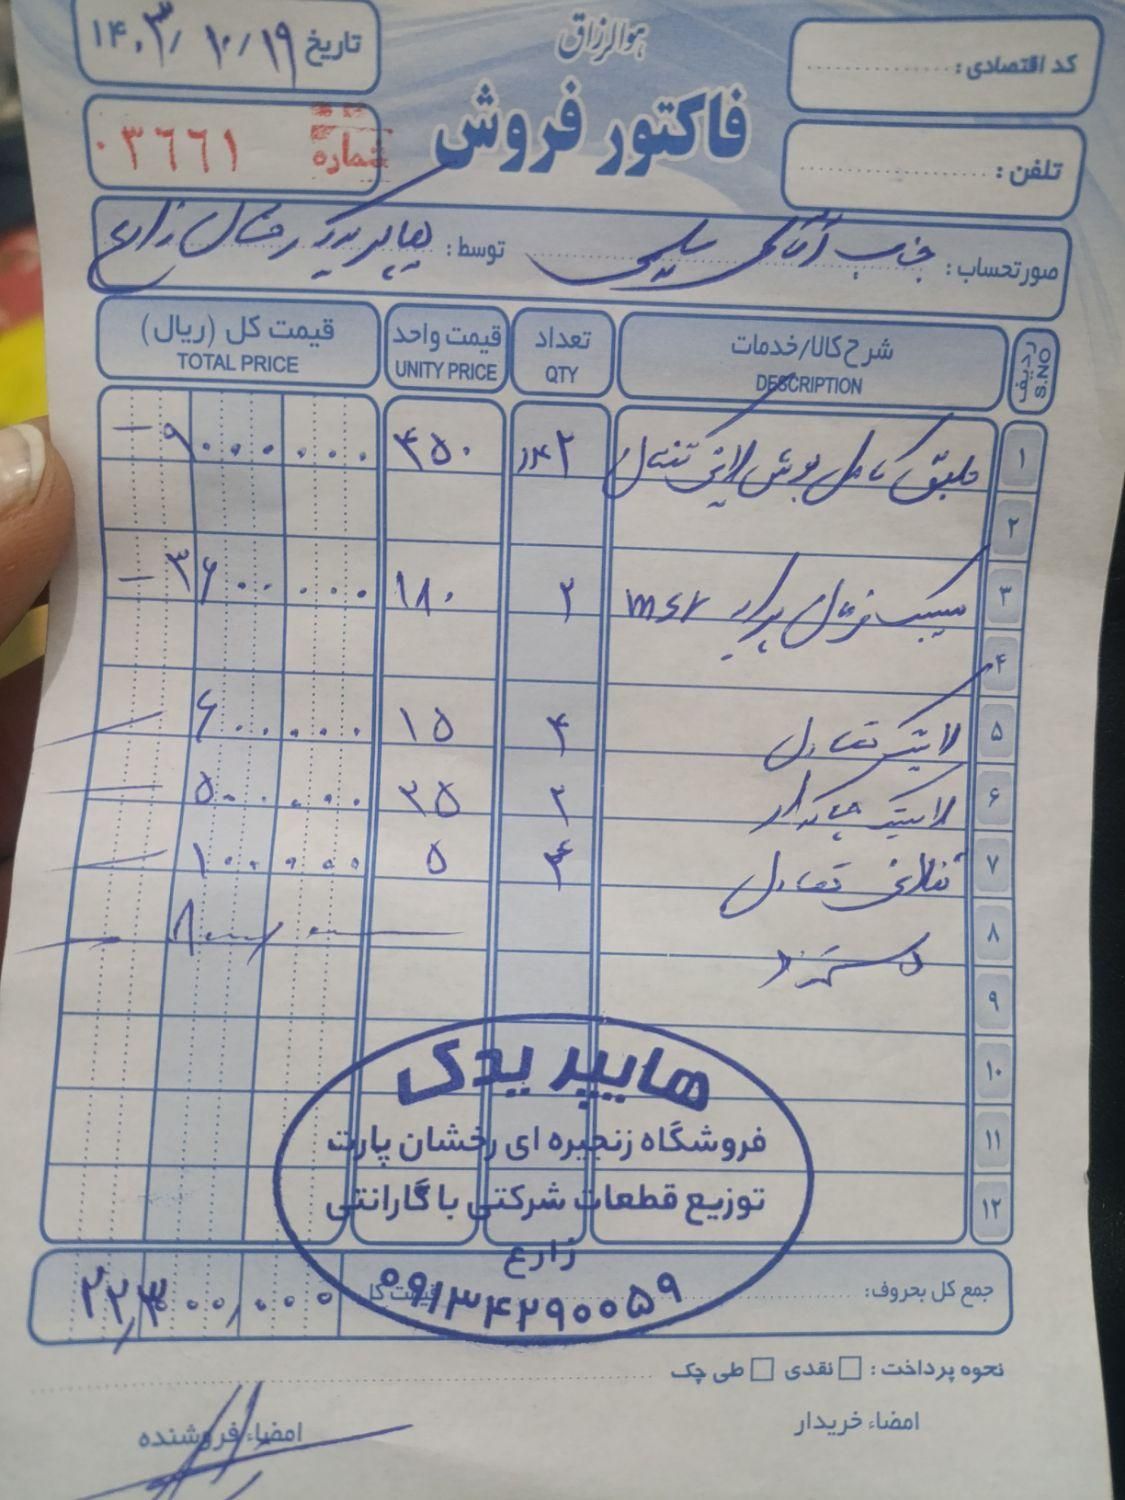 هوالرزاق
تاریخ ۱۴۰۳/۱۰/۱۹
فاکتور فروش
کد اقتصادی :
شماره ۰۳۶۶۱
تلفن :
صورتحساب : جناب آقای توسط : هایپر یدک رخشان زارع
ردیف S.NO
شرح کالا/خدمات DESCRIPTION
تعداد QTY
قیمت واحد UNITY PRICE
قیمت کل (ریال) TOTAL PRICE
۱ طبق کامل بوش ۲ ۴۵۰ ۹۰۰۰۰۰۰
۲
۳ سیبک msr ۲ ۱۸۰ ۳۶۰۰۰۰۰
۴
۵ لاستیک تعادل ۴ ۱۵ ۶۰۰۰۰۰
۶ لاستیک چاکدار ۲ ۲۵ ۵۰۰۰۰۰
۷ تعادل ۴ ۵ ۱۰۰۰۰۰
۸ دستمزد ۸
۹
۱۰
۱۱
۱۲
هایپر یدک
فروشگاه زنجیره ای رخشان پارت
توزیع قطعات شرکتی با گارانتی
زارع
۰۹۱۳۴۲۹۰۰۵۹
جمع کل بحروف : قیمت کل ۲۲,۳۰۰,۰۰۰
نحوه پرداخت : نقدی طی چک
امضاء خریدار
امضاء فروشنده